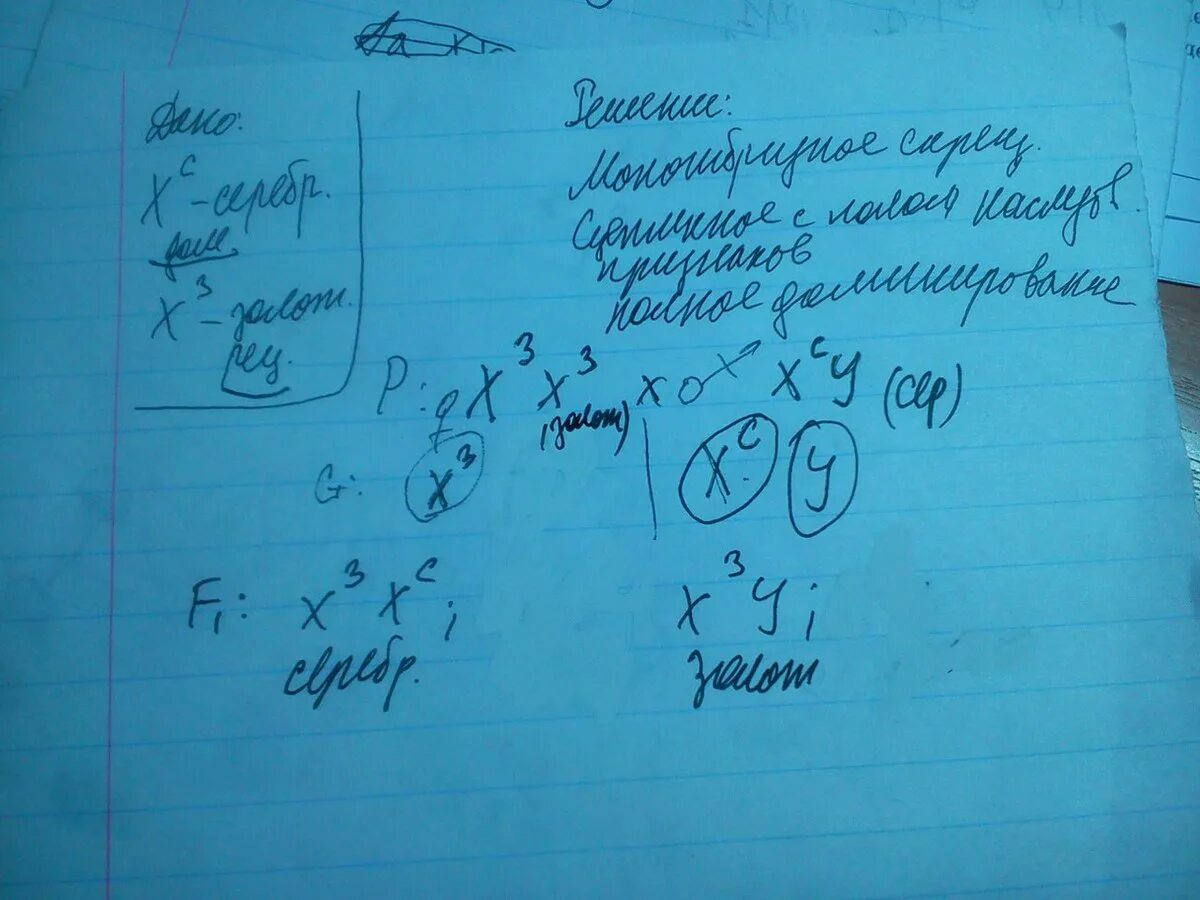 Дано:
X^С – серебр.
дом
X^З – золот.
рец.
Решение:
Моногибридное скрещ.
Сцепленное с полом наследов.
признаков
полное доминирование
P: ♀ X^З X^З х ♂ X^С У (сер)
(золот)
G: X^З | X^С У
F₁: X^З X^С ; X^З У ;
серебр. золот